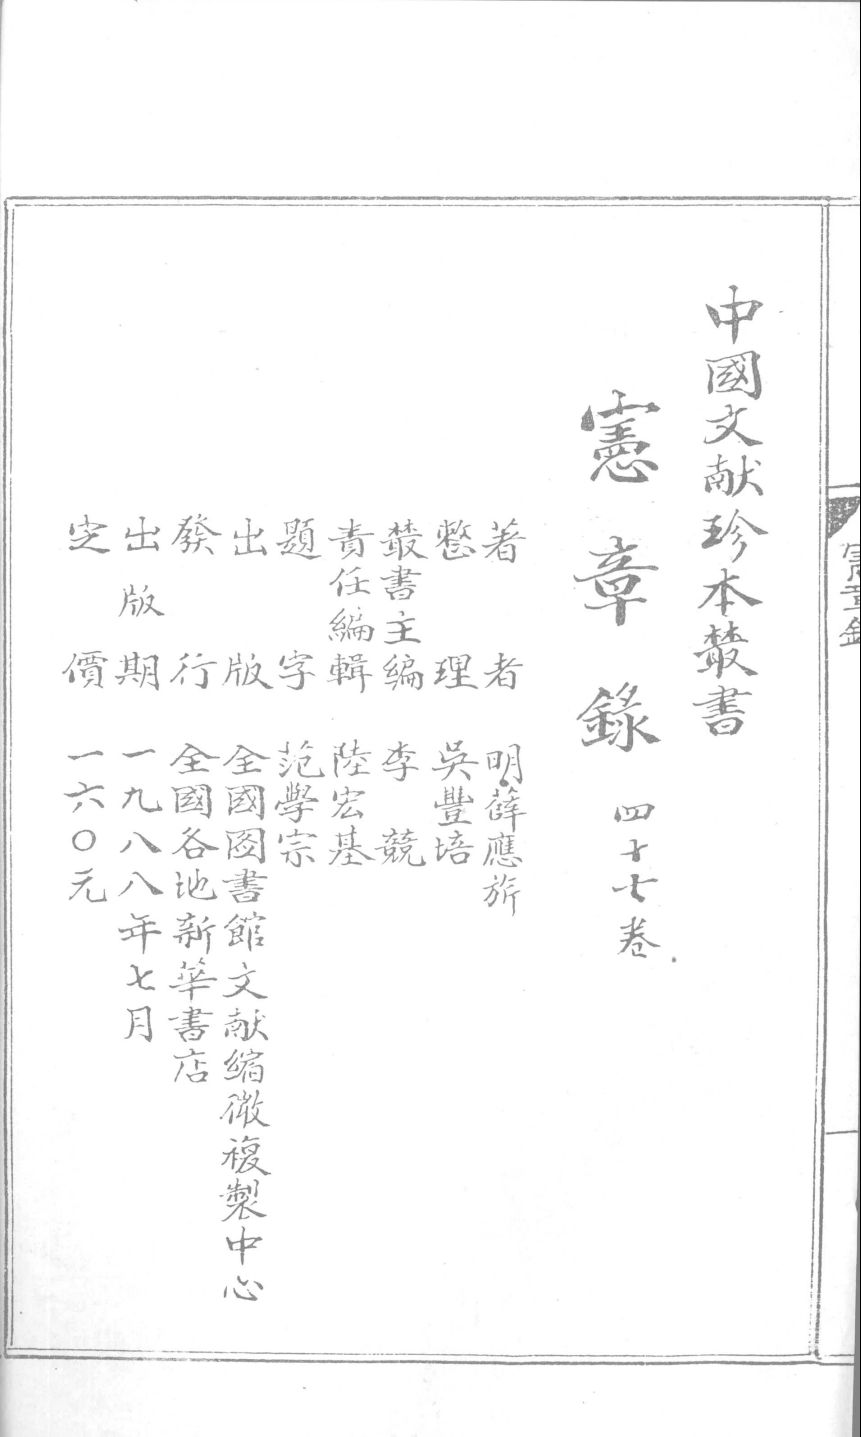 中國文献珍本叢書
憲章錄 四十七卷
著者 明·薛應旂
整理 吳豐培
叢書主編 李競
責任編輯 陸宏基
題字 范學宗
出版 全國图書館文献缩微複製中心
發行 全國各地新華書店
出版期 一九八八年七月
定價 一六〇元
憲章錄